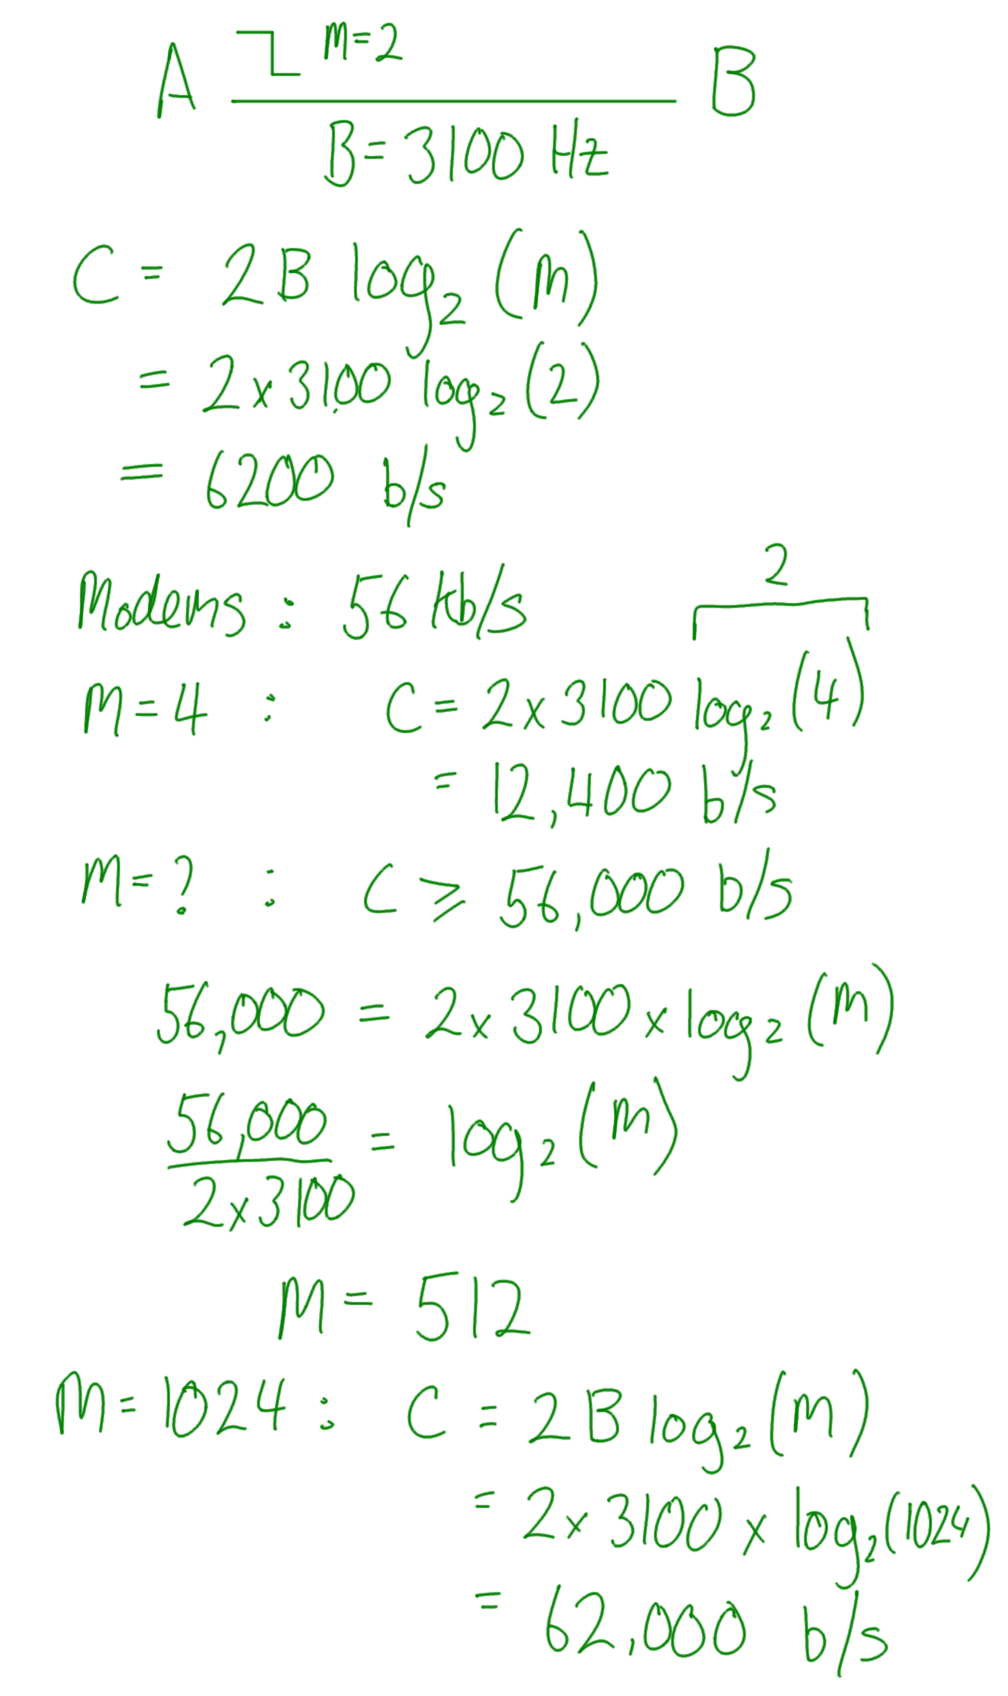 M=2
A B
B=3100 Hz
C = 2B log₂ (M)
= 2x3100 log₂ (2)
= 6200 b/s
Modems : 56 kb/s
2
M=4 : C= 2x3100 log₂ (4)
= 12,400 b/s
M=? : C ≥ 56,000 b/s
56,000 = 2x3100 x log₂ (M)
56,000 = log₂ (M)
2x3100
M = 512
M=1024 : C = 2B log₂ (M)
= 2x3100 x log₂(1024)
= 62,000 b/s